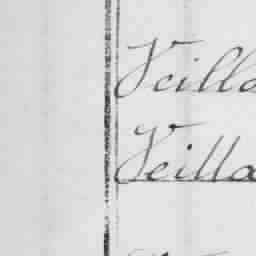 Veilla
Veilla